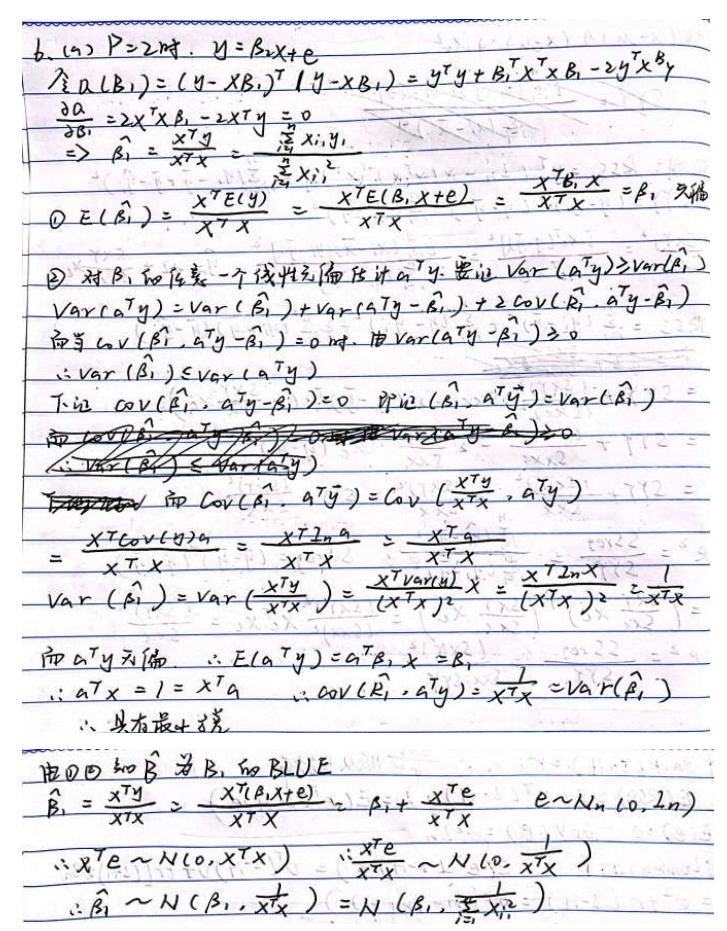 6. (a) P=2时. y=β₂x+e
令Q(β₁)=(y-Xβ₁)ᵀ(y-Xβ₁)=yᵀy+β₁ᵀXᵀXβ₁-2yᵀXβ₁
∂Q/∂β₁=2XᵀXβ₁-2Xᵀy=0
=> β̂₁=Xᵀy/XᵀX=∑ᵢ₌₁ⁿxᵢ,yᵢ/∑ᵢ₌₁ⁿxᵢ₁²
① E(β̂₁)=XᵀE(y)/XᵀX=XᵀE(β₁X+e)/XᵀX=Xᵀβ₁X/XᵀX=β₁ 无偏
② 对β₁的任意一个线性无偏估计aᵀy.要证Var(aᵀy)≥Var(β̂₁)
Var(aᵀy)=Var(β̂₁)+Var(aᵀy-β̂₁)+2Cov(β̂₁.aᵀy-β̂₁)
而当Cov(β̂₁,aᵀy-β̂₁)=0时.由Var(aᵀy-β̂₁)≥0
∴Var(β̂₁)≤Var(aᵀy)
下证 Cov(β̂₁.aᵀy-β̂₁)=0 即证(β̂₁.aᵀy)=Var(β̂₁)
而Cov(β̂₁.aᵀy)=Cov(Xᵀy/XᵀX.aᵀy)
=XᵀCov(y)a/XᵀX=XᵀIₙa/XᵀX=Xᵀa/XᵀX
Var(β̂₁)=Var(Xᵀy/XᵀX)=XᵀVar(y)X/(XᵀX)²=XᵀIₙX/(XᵀX)²=1/XᵀX
而aᵀy无偏.∴E(aᵀy)=aᵀβ₁X=β₁
∴aᵀX=1=Xᵀa ∴Cov(β̂₁.aᵀy)=1/XᵀX=Var(β̂₁)
∴具有最小方差
由①②知β̂为β₁的BLUE
β̂₁=Xᵀy/XᵀX=Xᵀ(β₁X+e)/XᵀX=β₁+Xᵀe/XᵀX e~Nₙ(0.Iₙ)
∴Xᵀe~N(0.XᵀX) ∴Xᵀe/XᵀX~N(0.1/XᵀX)
∴β̂₁~N(β₁.1/XᵀX)=N(β₁.1/∑ᵢ₌₁ⁿxᵢ₁²)